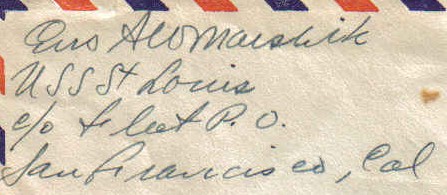 Ens A W Marshik
USS St Louis
c/o Fleet P.O.
San Francisco, Cal